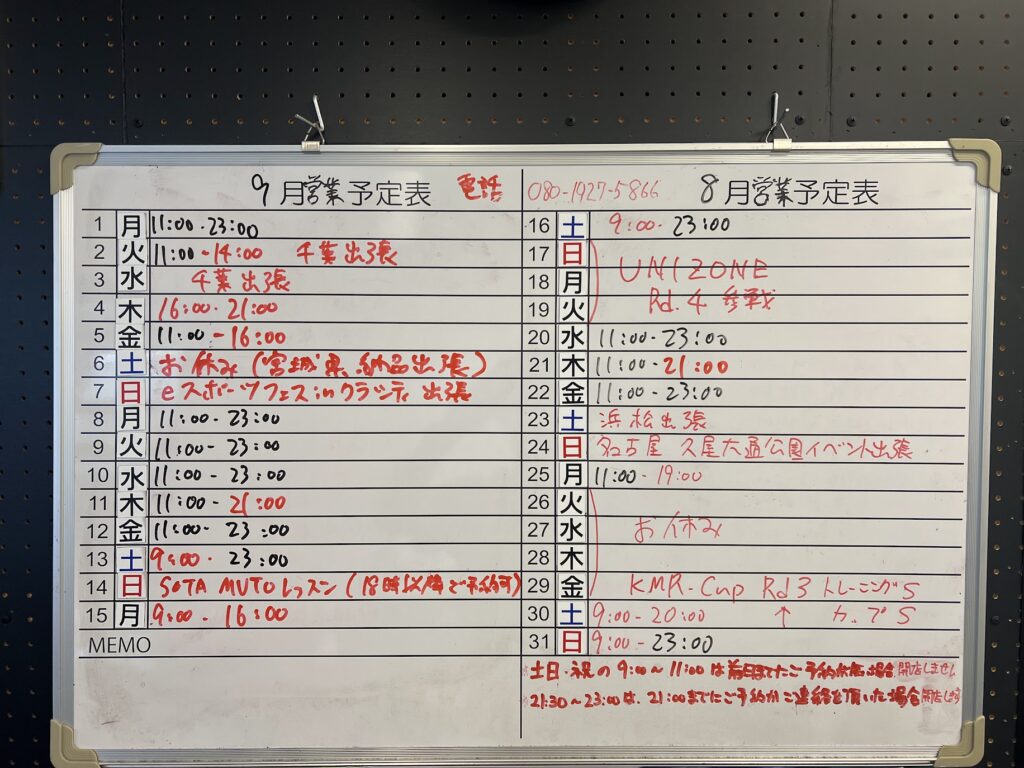 9月営業予定表 電話
1 月 11:00-23:00
2 火 11:00-14:00 千葉出張
3 水 千葉出張
4 木 16:00-21:00
5 金 11:00-16:00
6 土 お休み(宮城県 納品出張)
7 日 eスポーツフェスinクラシティ 出張
8 月 11:00-23:00
9 火 11:00-23:00
10 水 11:00-23:00
11 木 11:00-21:00
12 金 11:00-23:00
13 土 9:00-23:00
14 日 SOTA MUTOレッスン(18時以降ご予約可)
15 月 9:00-16:00
MEMO
080-1927-5866 8月営業予定表
16 土 9:00-23:00
17 日
18 月 UNIZONE
19 火 Rd.4 参戦
20 水 11:00-23:00
21 木 11:00-21:00
22 金 11:00-23:00
23 土 浜松出張
24 日 名古屋 久屋大通公園イベント出張
25 月 11:00-19:00
26 火
27 水 お休み
28 木
29 金 KMR-Cup Rd3 トレーニングS
30 土 9:00-20:00 ↑ カップS
31 日 9:00-23:00
土日・祝の9:00~11:00は前日までにご予約が無い場合開店しません
21:30~23:00は、21:00までにご予約かご連絡を頂いた場合開店します